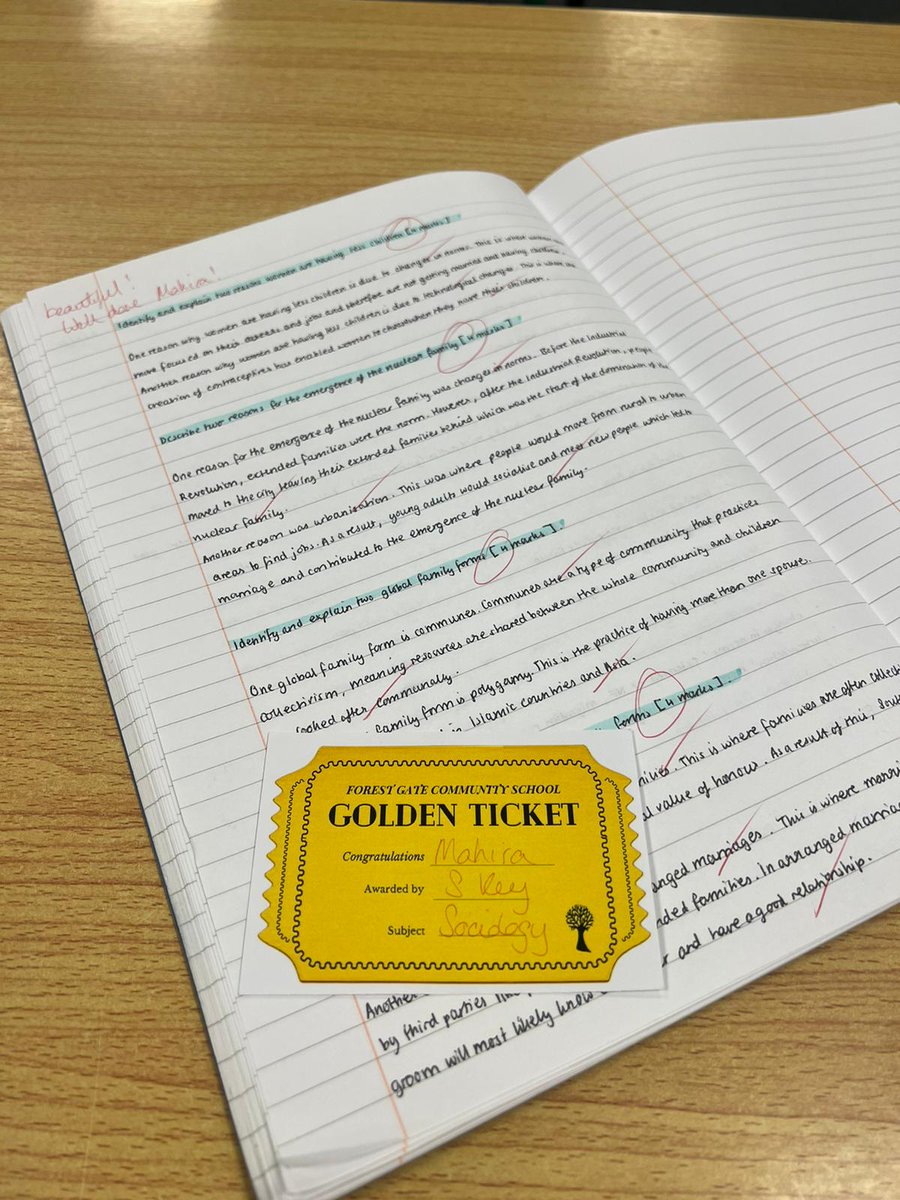 beautiful!
Well done Mahira!
Identify and explain two reasons women are having less children [4 marks]
One reason why women are having less children is due to changes in norms. This is where women
more focused on their careers and jobs and therefore are not getting married and having children.
Another reason why women are having less children is due to technological changes. This is where the
creation of contraceptives has enabled women to choose when they have their children.
Describe two reasons for the emergence of the nuclear family [4 marks].
One reason for the emergence of the nuclear family was changes in norms. Before the Industrial
Revolution, extended families were the norm. However, after the Industrial Revolution, people
moved to the city leaving their extended families behind which was the start of the domination of the
nuclear family.
Another reason was urbanisation. This was where people would move from rural to urban
areas to find jobs. As a result, young adults would socialise and meet new people which led to
marriage and contributed to the emergence of the nuclear family.
Identify and explain two global family forms [4 marks].
One global family form is communes. Communes are a type of community that practices
collectivism, meaning resources are shared between the whole community and children
looked after communally.
family form is polygamy. This is the practice of having more than one spouse.
in Islamic countries and Asia.
forms [4 marks].
families. This is where families are often
value of honour. As a result of this,
arranged marriages. This is where
extended families. In arranged
and have a good relationship.
Another
by third parties like
groom will most likely know
FOREST GATE COMMUNTY SCHOOL
GOLDEN TICKET
Congratulations Mahira
Awarded by S Key
Subject Sociology